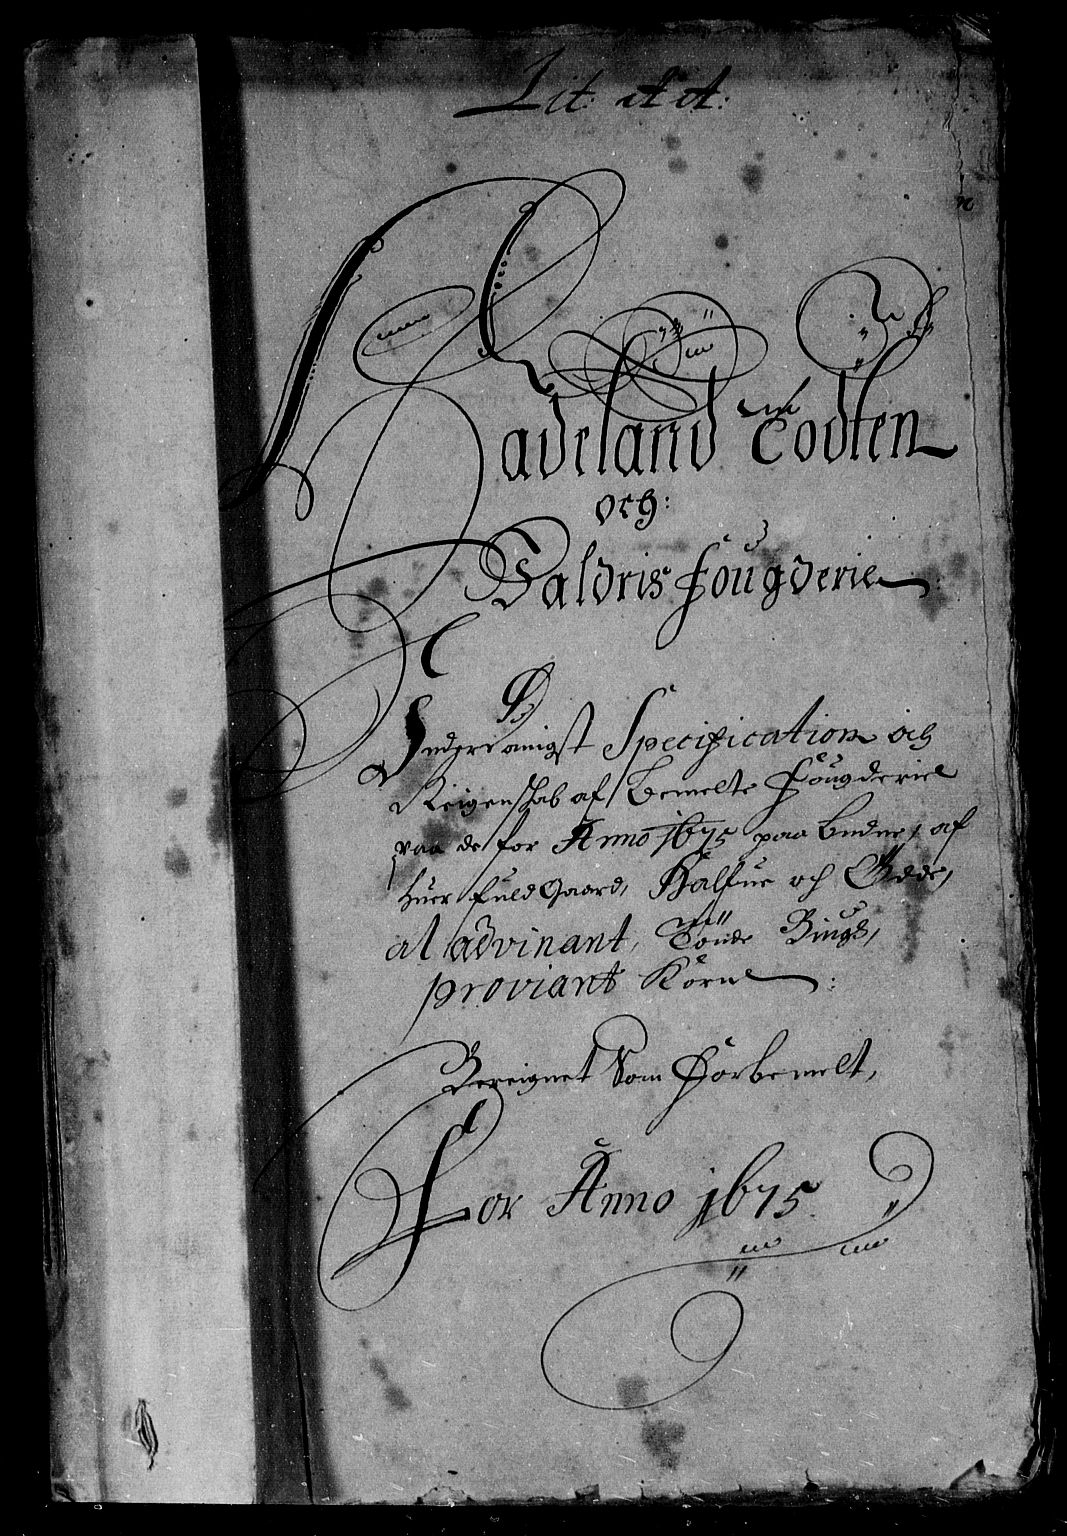 Lit: A A:
Hadeland Todten
och:
Valdris fougderie:
Underdanigst Specification och
Reigenschab af bemelte Fougderie
paa de for Anno 1675 paa budne, af
huer fuld Gaard, Halfue och Ødde,
at advinant, Tönde Biugs,
proviant Korne:
Bereignet Som Forbemelt,
For Anno 1675.